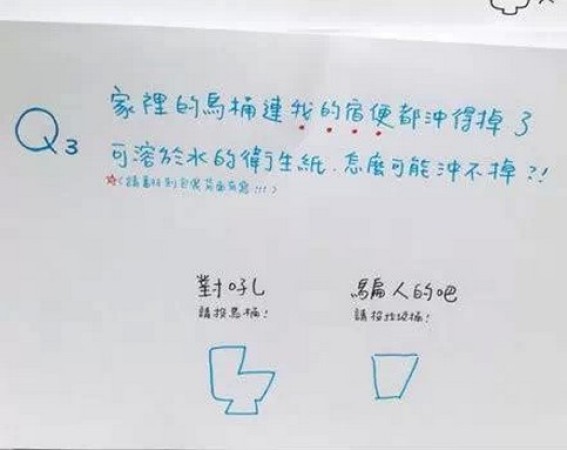 Q3
家裡的馬桶連我的宿便都沖得掉了
可溶於水的衛生紙.怎麼可能沖不掉?!
背面有寫!!!)
對吼 騙人的吧
請投馬桶! 請投垃圾桶!